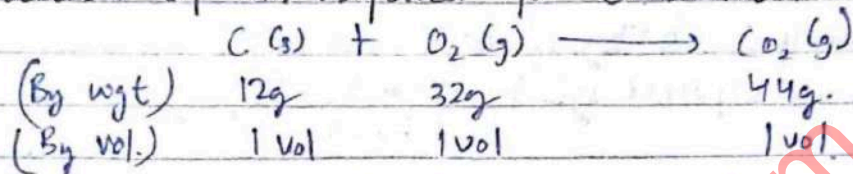 C (s) + O₂ (g) ⟶ CO₂ (g)
(By wgt) 12g 32g 44g.
(By vol.) 1 vol 1 vol 1 vol.